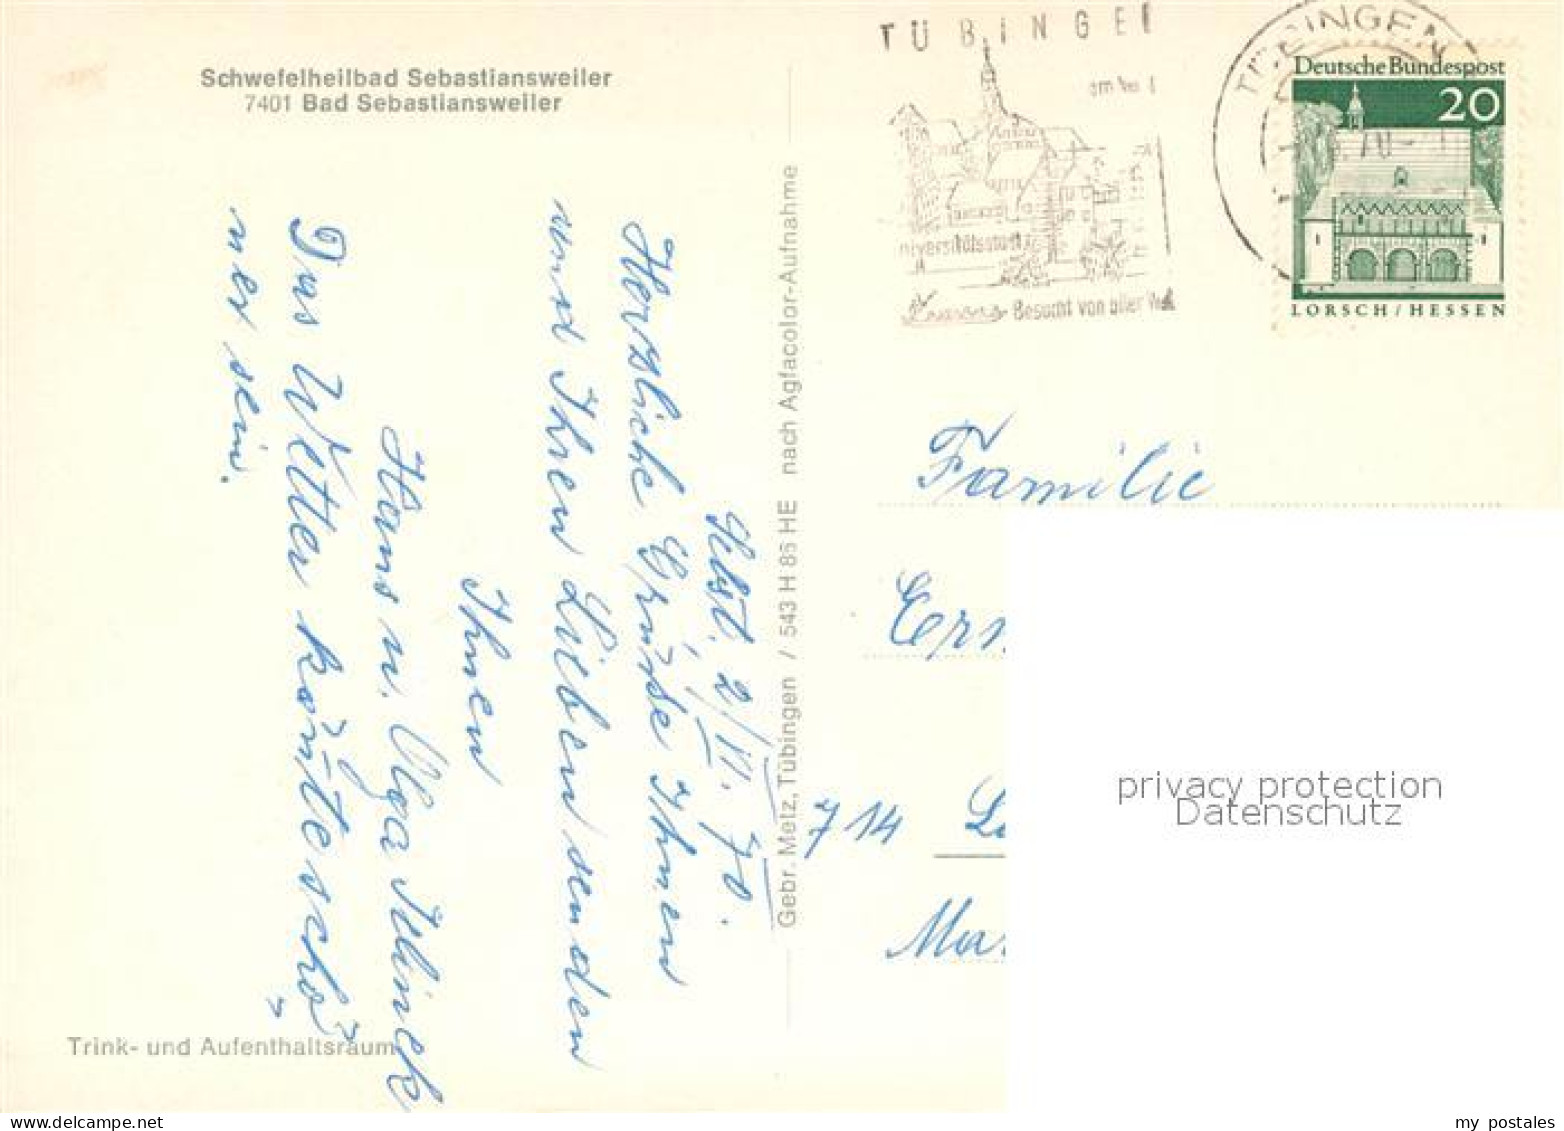 Schwefelheilbad Sebastiansweiler
7401 Bad Sebastiansweiler
2/VI. 70.
Herzliche Grüße Ihnen
und Ihren Lieben senden
Ihnen
Hans u. Olga
Das Wetter könnte schö-
ner sein.
Trink- und Aufenthaltsraum
Gebr. Metz, Tübingen / 543 H 86 HE nach Agfacolor-Aufnahme
TÜBINGE
am
niversitätsstadt
Besucht von aller
TÜBINGEN
70
Deutsche Bundespost
20
LORSCH/HESSEN
Familie
714
privacy protection
Datenschutz
my postales
www.delcampe.net